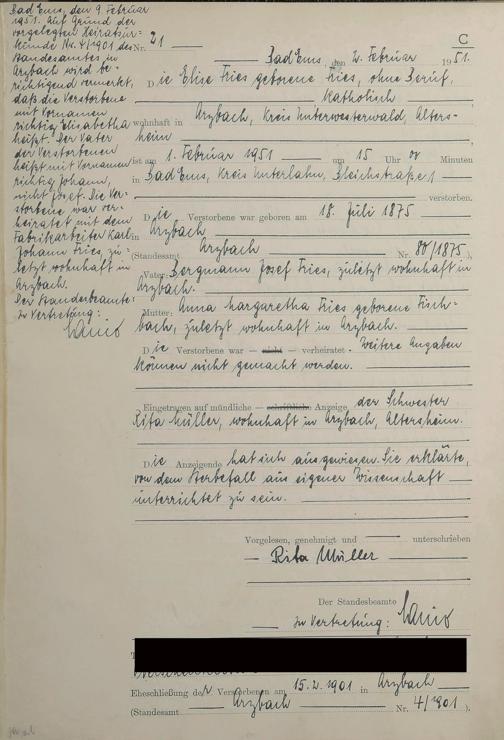 Bad Ems, den 9. Februar
1951. Auf Grund der
vorgelegten Heiratsur=
kunde Nr. 4/1901 des
Standesamtes in
Arzbach wird be=
richtigend vermerkt,
daß die Verstorbene
mit Vornamen
richtig Elisabetha
heißt. Der Vater
der Verstorbenen
heißt mit Vornamen
richtig Johann,
nicht Josef. Die Ver=
storbene war ver=
heiratet mit dem
Fabrikarbeiter Karl
Johann Fries, zu=
letzt wohnhaft in
Arzbach.
Der Standesbeamte:
In Vertretung:
C
Nr. 21
Bad Ems, den 2. Februar 1951.
Die Elise Fries geborene Fries, ohne Beruf,
katholisch
wohnhaft in Arzbach, Kreis Unterwesterwald, Alters-
heim
ist am 1. Februar 1951 um 15 Uhr 00 Minuten
in Bad Ems, Kreis Unterlahn, Bleichstraße 1
verstorben.
Die Verstorbene war geboren am 18. Juli 1875
in Arzbach
(Standesamt Arzbach Nr. 80/1875),
Vater: Bergmann Josef Fries, zuletzt wohnhaft in
Arzbach.
Mutter: Anna Margaretha Fries geborene Fisch=
bach, zuletzt wohnhaft in Arzbach.
Die Verstorbene war — nicht — verheiratet. Weitere Angaben
können nicht gemacht werden.
Eingetragen auf mündliche — schriftliche Anzeige der Schwester
Rita Müller, wohnhaft in Arzbach, Altersheim.
Die Anzeigende hat sich ausgewiesen. Sie erklärte,
von dem Sterbefall aus eigener Wissenschaft
unterrichtet zu sein.
Vorgelesen, genehmigt und unterschrieben
Rita Müller
Der Standesbeamte
In Vertretung:
Eheschließung der Verstorbenen am 15.2.1901 in Arzbach
(Standesamt Arzbach Nr. 4/1901).